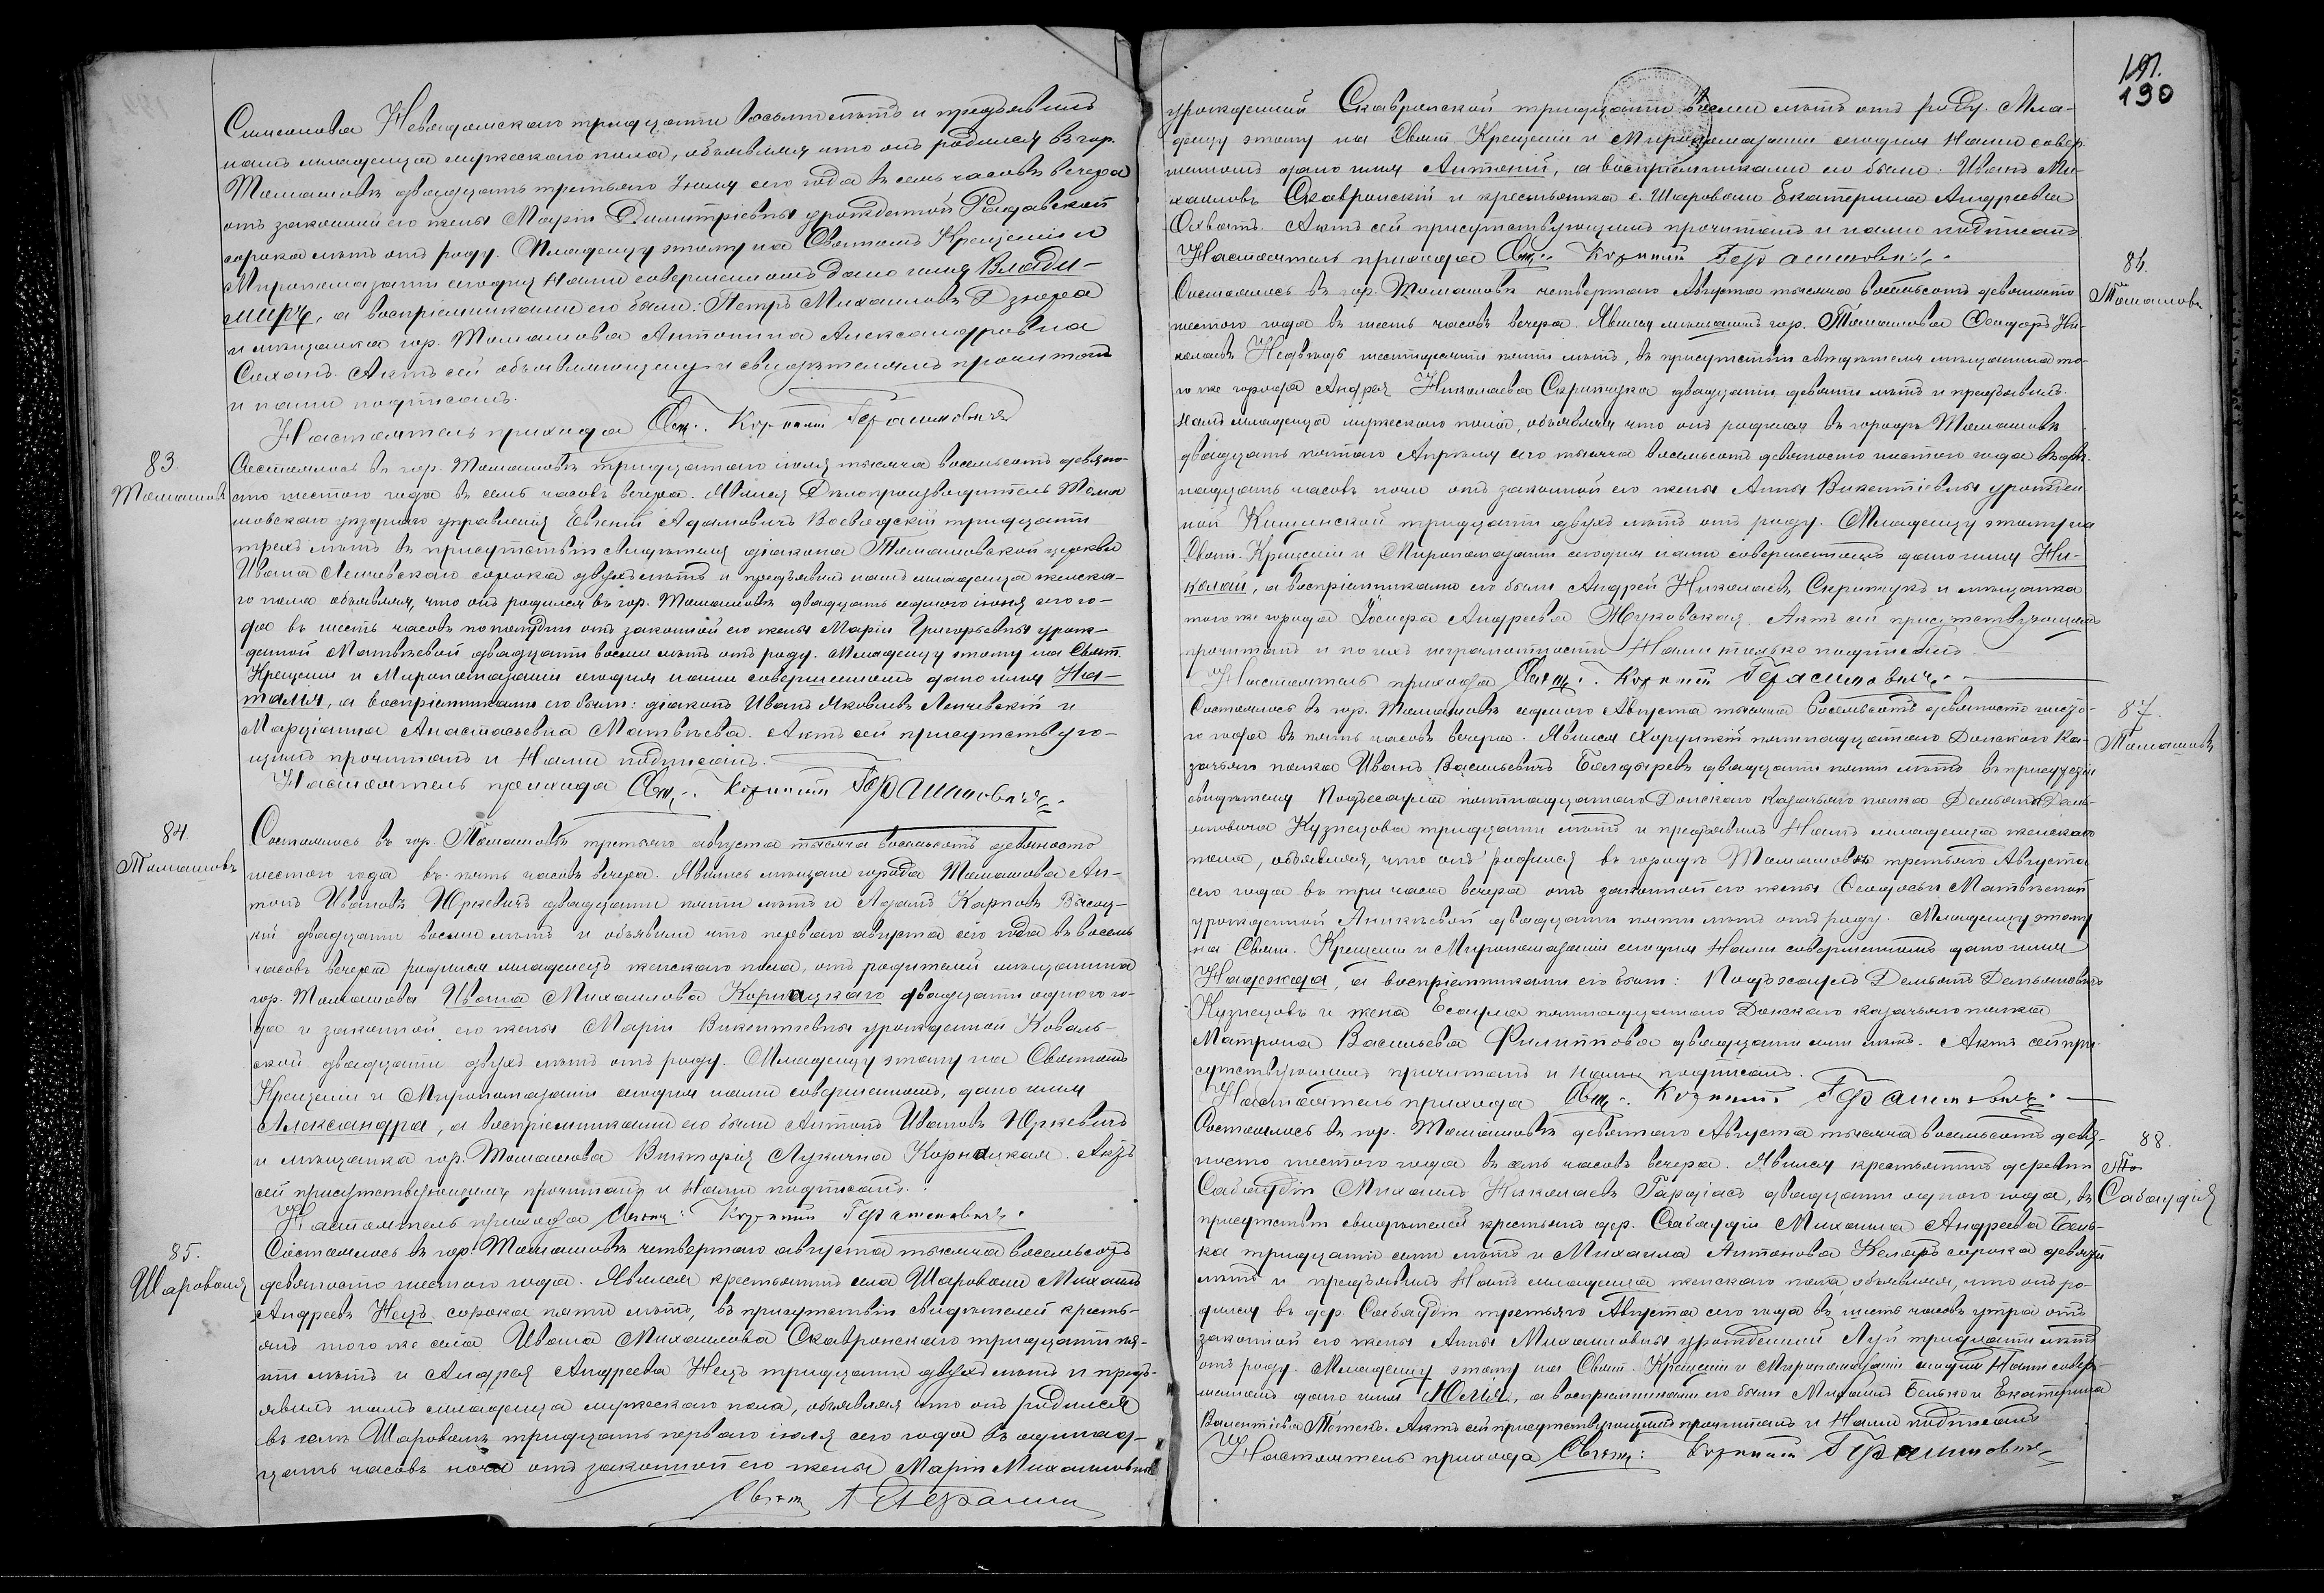 Симеонова Невядомскаго тридцати восьми лѣтъ и предъявилъ
намъ младенца мужескаго пола, объявляя что онъ родился въ гор.
Томашовѣ двадцать третьяго Іюля сего года въ семь часовъ вечера
отъ законной его жены Маріи Димитріевны урожденной
сорока лѣтъ отъ роду. Младенцу этому на Святомъ Крещеніи и
Миропомазаніи сегодня Нами совершенномъ дано имя Влади-
міръ, а воспріемниками его были: Петръ Михаиловъ Дзюра
и мѣщанка гор. Томашова Антонина Александровна
Сахань. Актъ сей объявляющему и свидѣтелямъ прочитанъ
и нами подписанъ.
Настоятель прихода Свящ. Корнилій Герасимовичъ
83.
Томашовъ
Состоялось въ гор. Томашовѣ тридцатаго іюля тысяча восемьсотъ девяно-
сто шестого года въ семь часовъ вечера. Явился Дѣлопроизводитель Тома
шовскаго уѣзднаго управленія Евгеній Адамовичъ Воеводскій тридцати
трехъ лѣтъ въ присутствіи свидѣтеля діакона Томашовской церкви
Ивана Ленчевскаго сорока двухъ лѣтъ и предъявилъ намъ младенца женска-
го пола объявляя, что онъ родился въ гор. Томашовѣ двадцать седмого іюня сего го-
да въ шесть часовъ пополудни отъ законной его жены Маріи Григорьевны урож-
денной Матвѣевой двадцати восьми лѣтъ отъ роду. Младенцу этому на Свят.
Крещеніи и Миропомазаніи сегодня нами совершенномъ дано имя На-
талія, а воспріемниками его были: діаконъ Иванъ Яковлевъ Ленчевскій и
Марціанна Анастасьевна Матвѣева. Актъ сей присутствую-
щимъ прочитанъ и Нами подписанъ.
Настоятель прихода Свящ. Корнилій Герасимовичъ
84
Томашовъ
Состоялось въ гор. Томашовѣ третьяго августа тысяча восемьсотъ девяносто
шестого года въ пять часовъ вечера. Явились мѣщане города Томашова Ан-
тонъ Ивановъ Юркевичъ двадцати пяти лѣтъ и Адамъ Карповъ Васоц-
кій двадцати восьми лѣтъ и объявили что перваго августа сего года въ восемь
часовъ вечера родился младенецъ женскаго пола, отъ родителей мѣщанина
гор. Томашова Ивана Михаилова Корнацкаго двадцати одного го-
да и законной его жены Маріи Викентіевны урожденной Коваль-
ской двадцати двухъ лѣтъ отъ роду. Младенцу этому на Святомъ
Крещеніи и Миропомазаніи сегодня нами совершенномъ, дано имя
Александра, а воспріемниками его были Антонъ Ивановъ Юркевичъ
и мѣщанка гор. Томашова Викторія Лукична Корнацкая. Актъ
сей присутствующимъ прочитанъ и Нами подписанъ.
Настоятель прихода Свящ: Корнилій Герасимовичъ
85.
Шаровоня
Состоялось въ гор. Томашовѣ четвертаго августа тысяча восемьсотъ
девяносто шестого года. Явился крестьянинъ села Шаровони Михаилъ
Андреевъ Нецъ сорока пяти лѣтъ, въ присутствіи свидѣтелей кресть-
янъ того же села Ивана Михаилова Скавронскаго тридцати пя-
ти лѣтъ и Андрея Андреева Нецъ тридцати двухъ лѣтъ и предъ-
явилъ намъ младенца мужескаго пола, объявляя что онъ родился
въ селѣ Шаровонѣ тридцать перваго іюля сего года въ одиннад-
цать часовъ ночи отъ законной его жены Маріи Михаиловны
Свящ
190
урожденной Скавронской тридцати восьми лѣтъ отъ роду. Мла-
денцу этому на Свят. Крещеніи и Миропомазаніи сегодня Нами совер-
шенномъ дано имя Антоній, а воспріемниками его были: Иванъ Ми-
хаиловъ Скавронскій и крестьянка с. Шаровони Екатерина Андреева
Охватъ. Актъ сей присутствующимъ прочитанъ и нами подписанъ.
Настоятель прихода Свящ. Корнилій Герасимовичъ
86.
Томашовъ
Состоялось въ гор. Томашовѣ четвертаго Августа тысяча восемьсотъ девяносто
шестого года въ шесть часовъ вечера. Явился мѣщанинъ гор. Томашова Ѳеодоръ Ни-
колаевъ Недзвѣдь шестидесяти пяти лѣтъ, въ присутствіи свидѣтеля мѣщанина то-
го же города Андрея Николаева Скрипчука двадцати девяти лѣтъ и предъявилъ
намъ младенца мужескаго пола, объявляя что онъ родился въ городѣ Томашовѣ
двадцать пятаго Апрѣля сего тысяча восемьсотъ девяносто шестого года въ две-
надцать часовъ ночи отъ законной его жены Анны Викентіевны урожден
ной Кишинской тридцати двухъ лѣтъ отъ роду. Младенцу этому на
Свят. Крещеніи и Миропомазаніи сегодня нами совершенномъ дано имя Ни-
колай, а воспріемниками его были Андрей Николаевъ Скрипчукъ и мѣщанка
того же города Іосифа Андреева Жуковская. Актъ сей присутствующимъ
прочитанъ и по ихъ неграмотности Нами только подписанъ.
Настоятель прихода Свящ. Корнилій Герасимовичъ
87.
Томашовъ
Состоялось въ гор. Томашовѣ седмого Августа тысяча восемьсотъ девяносто шесто-
го года въ пять часовъ вечера. Явился Хорунжій пятнадцатаго Донского Ка-
зачьяго полка Иванъ Васильевичъ Болдыревъ двадцати пяти лѣтъ въ присутствіи
свидѣтеля Подъесаула пятнадцатаго Донского Казачьяго полка Демьяна Демь-
яновича Кузнецова тридцати лѣтъ и предъявилъ Намъ младенца женскаго
пола, объявляя, что онъ родился въ городѣ Томашовѣ третьяго Августа
сего года въ три часа вечера отъ законной его жены Ѳеодосьи Матвѣевой
урожденной Аникѣевой двадцати пяти лѣтъ отъ роду. Младенцу этому
на Свят. Крещеніи и Миропомазаніи сегодня Нами совершенномъ дано имя
Надежда, а воспріемниками его были: Подъесаулъ Демьянъ Демьяновичъ
Кузнецовъ и жена Есаула пятнадцатаго Донского казачьяго полка
Матрона Васильева Филиппова двадцати лѣтъ. Актъ сей при-
сутствующимъ прочитанъ и нами подписанъ.
Настоятель прихода Свящ. Корнилій Герасимовичъ
88.
Сабаудія
Состоялось въ гор. Томашовѣ девятаго Августа тысяча восемьсотъ девя-
носто шестого года въ семь часовъ вечера. Явился крестьянинъ деревни
Сабаудіи Михаилъ Николаевъ Гардіасъ двадцати одного года, въ
присутствіи свидѣтелей крестьянъ дер. Сабаудіи Михаила Андреева Бень-
ка тридцати семи лѣтъ и Михаила Антонова Келаръ сорока девяти
лѣтъ и предъявилъ Намъ младенца женскаго пола, объявляя, что онъ ро-
дился въ дер. Сабаудіи третьяго Августа сего года въ шесть часовъ утра отъ
законной его жены Анны Михаиловны урожденной Луй тридцати лѣтъ
отъ роду. Младенцу этому на Свят. Крещеніи и Миропомазаніи сегодня Нами совер-
шенномъ дано имя Юлія, а воспріемниками его были Михаилъ Бенько и Екатерина
Валентіева. Актъ сей присутствующимъ прочитанъ и Нами подписанъ
Настоятель прихода Свящ: Корнилій Герасимовичъ